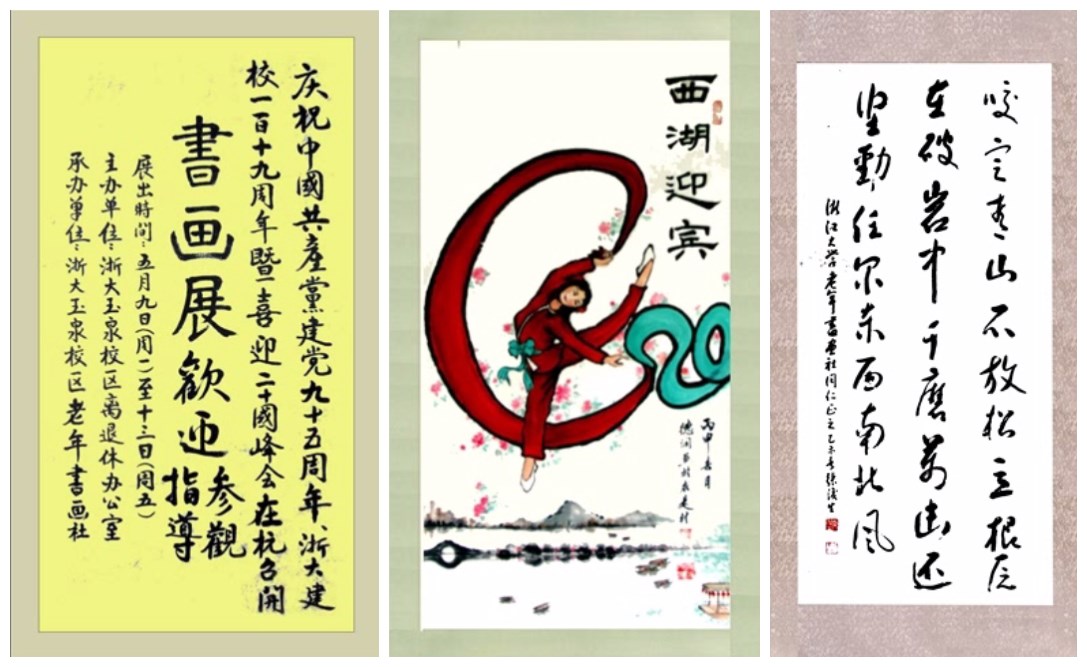 庆祝中國共產黨建党九十五周年、浙大建
校一百十九周年暨喜迎二十國峰会在杭召開
書画展歡迎
参觀
指導
展出時間：五月九日(周一)至十三日(周五)
主办单位：浙大玉泉校区离退休办公室
承办单位：浙大玉泉校区老年書画社
西湖迎宾
G20
丙申春月
咬定青山不放松立根原
在破岩中千磨萬击还
坚勁任尔东西南北风
浙江大学老年書画社同仁正之乙未春